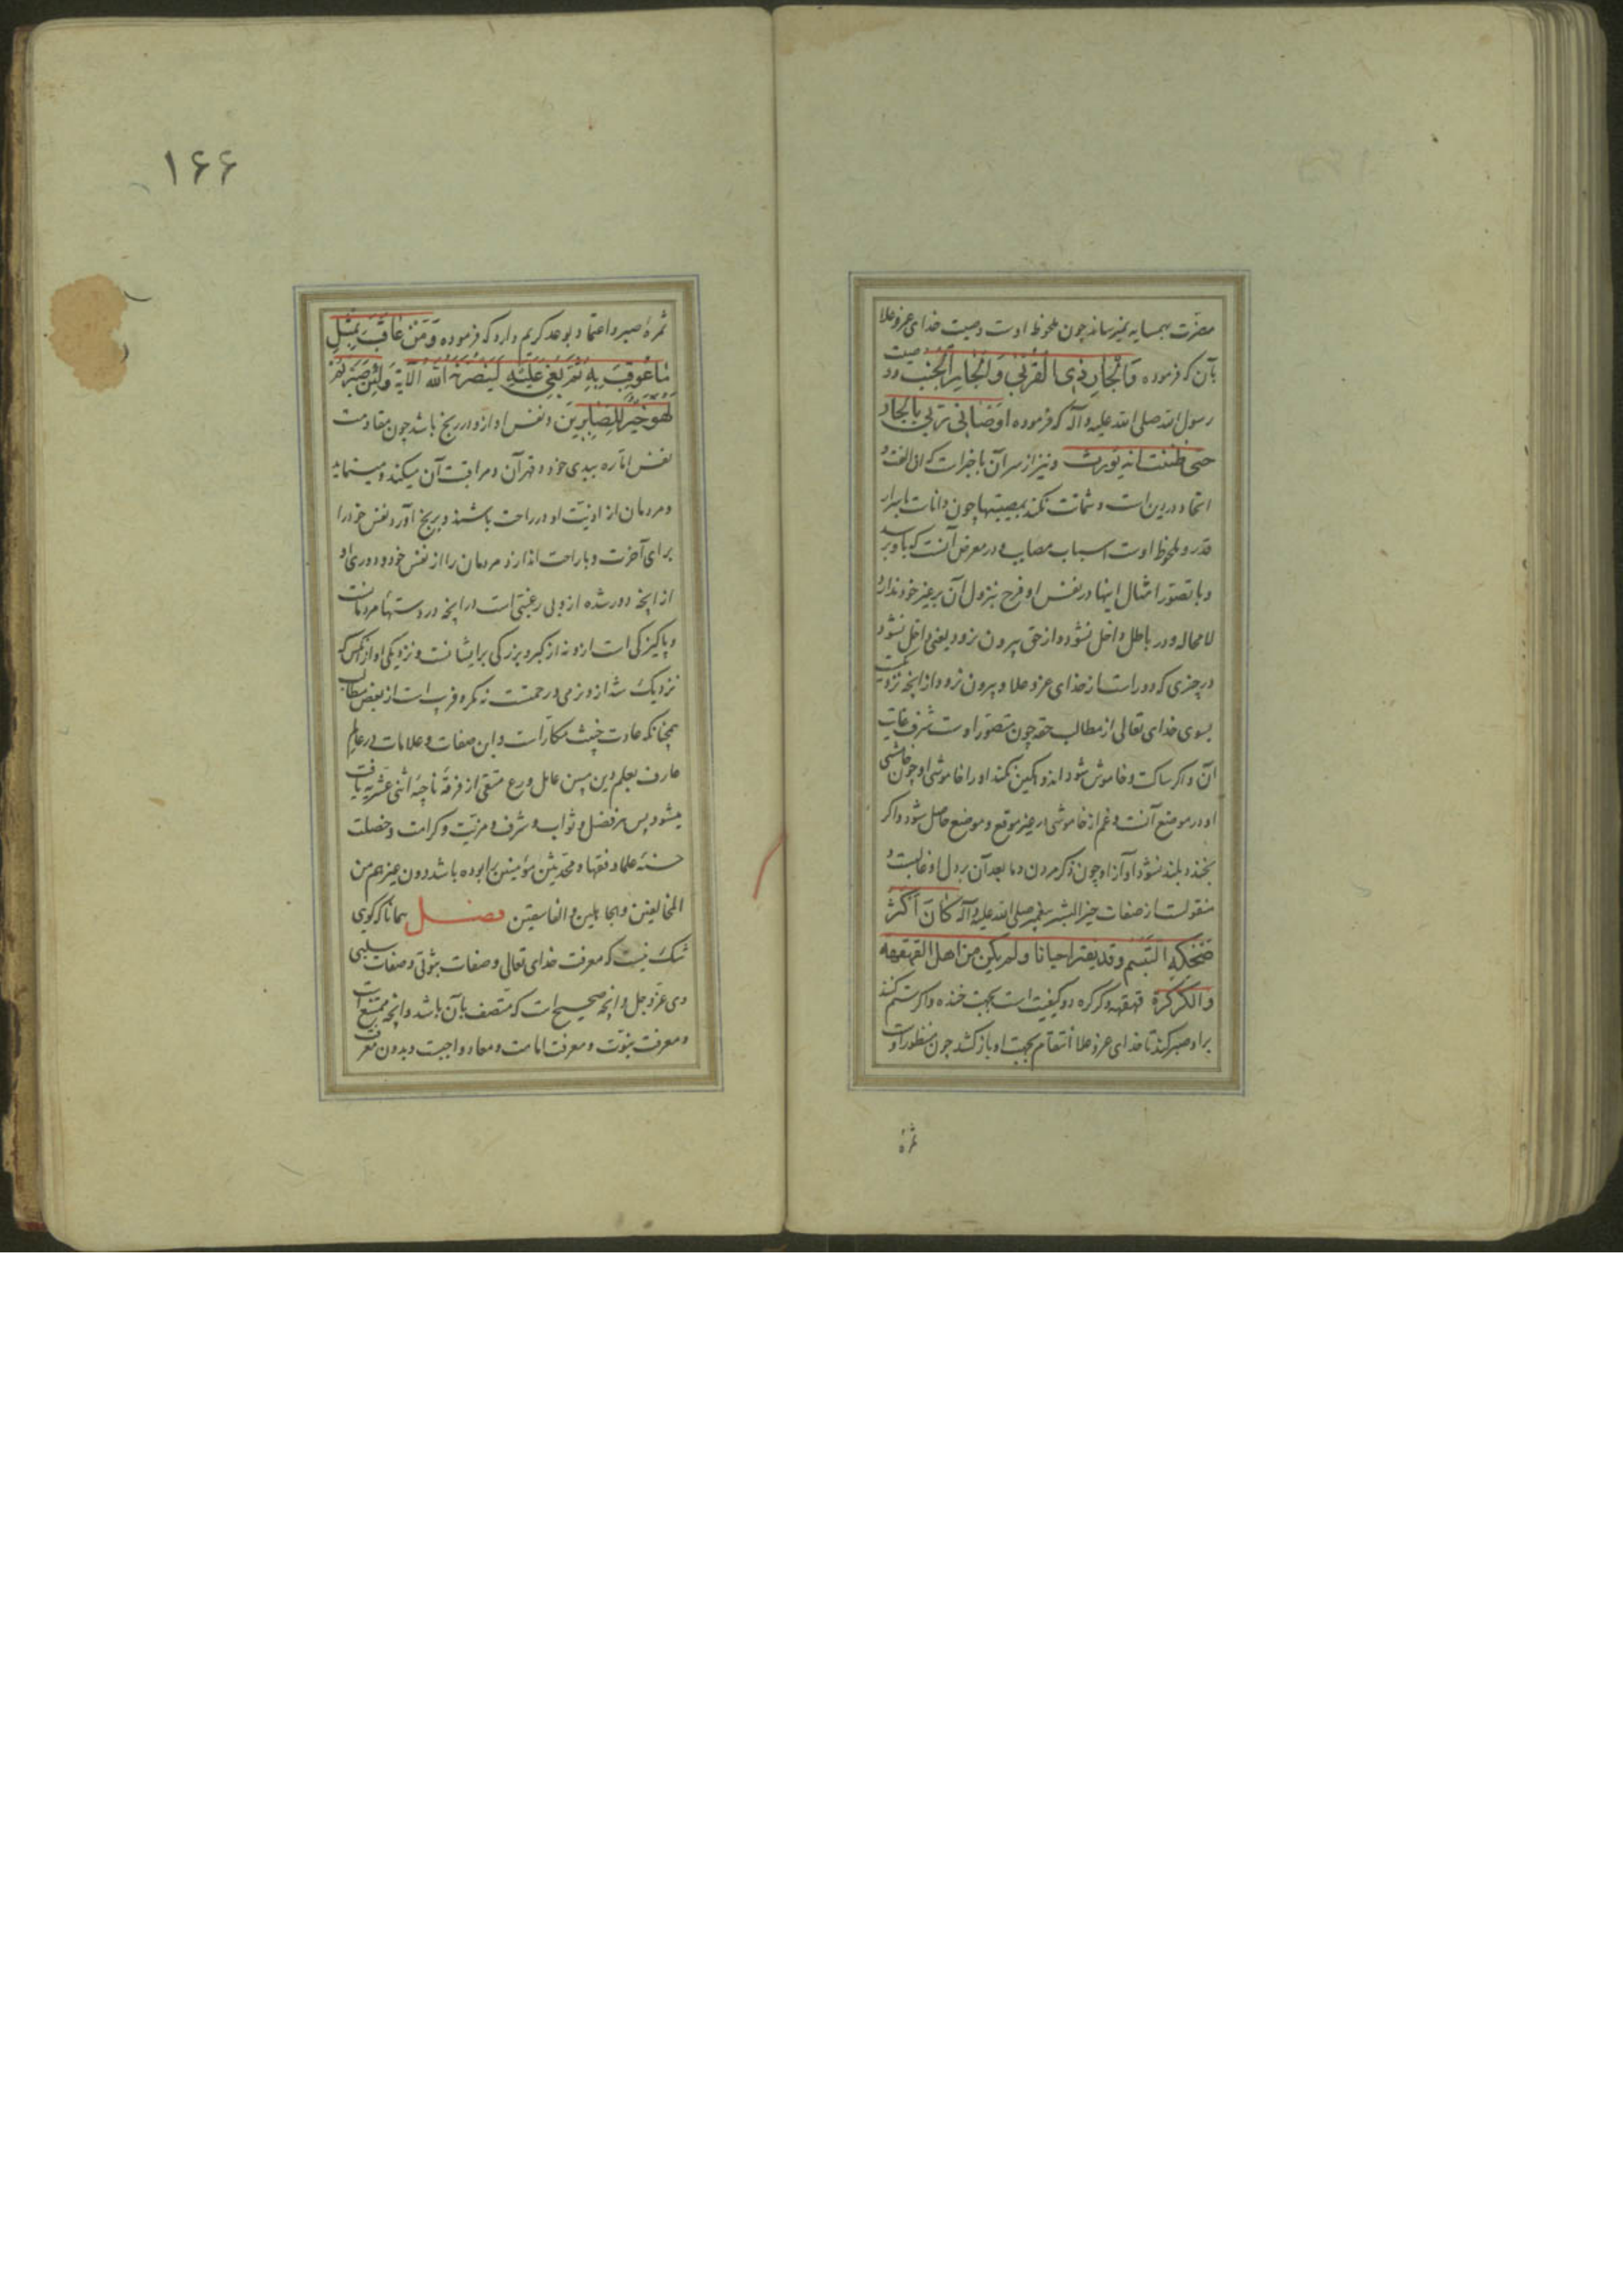 مضرّت بهمسایه نمیرساند چون ملحوظ اوست وصیت خدای عزوعلا
بآن که فرموده وَالْجَارِ ذِی الْقُرْبی وَالْجَارِ الْجُنُبِ و وصیت
رسول الله صلی الله علیه وآله که فرموده اَوْصَانی رَبّی بالجار
حتی ظننت انه یورث ونیز از سر آن باخبر است که آن الفت و
اتحاد در دین است و شماتت نکند بمصیبتها چون دانا است باسرار
قدر و ملحوظ اوست اسباب مصایب و در معرض آنست که باو برسد
و با تصوّر امثال اینها در نفس او فرح بنزول آن بر غیر خود ندارد
لامحاله و در باطل داخل نشود و از حق بیرون نرود یعنی داخل نشود
در چیزی که دور است از خدای عزوعلا و بیرون نرود از آنچه نزدیکست
بسوی خدای تعالی از مطالب حقه چون متصوّر اوست شرف غایت
آن و اگر ساکت و خاموش شود اندوهگین نکند او را خاموشی او چون خاموشی
او در موضع آنست و غم از خاموشی در غیر موقع و موضع حاصل شود و اگر
بخندد بلند نشود آواز او چون ذکر مردن و ما بعد آن بر دل او غالبست و
منقولست از صفات خیر البشر پیغمبر صلی الله علیه وآله کانَ اَکْثَرُ
ضِحْکِهِ التَّبَسُّم وقد یفتر احیانا ولم یکن من اهل القهقهه
والکرکرة قهقهه و کرکره دو کیفیت است بجهت خنده و اگر ستم کنند
براو صبر کند تا خدای عزوعلا انتقام بجهت او بازکشد چون منظور اوست
ثمرهٔ
۱۶۶
ثمرهٔ صبر و اعتماد بوعد کریم دارد که فرموده وَمَنْ عَاقَبَ بِمِثْلِ
مَا عُوقِبَ بِهِ ثُمَّ بُغِیَ عَلَیْهِ لَیَنْصُرَنَّهُ اللهُ الآیة وَلَئِنْ صَبَرْتُمْ
لَهُوَ خَیْرٌ لِلصَّابِرِینَ و نفس او از و در رنج باشد چون مقاومت
نفس امّاره ببدی خود و قهر آن و مراقبت آن میکند و مینماید
و مردمان از اذیّت او در راحت باشند و برنج آورد نفس خود را
برای آخرت و براحت اندازد مردمان را از نفس خود و دوری او
از آنچه دور شده ازو بی رغبتی است در آنچه در دستهاء مردمانست
و پاکیزگی است ازو نه از کبر و بزرگی برایشانست و نزدیکی او از آنکس که
نزدیک شد ازو نرمی و رحمتست نه مکر و فریب است از بعض مطالب
همچنانکه عادت خبیث مکار است و این صفات و علامات در عالم
عارف بعلم دین مبین عامل ورع متقی از فرقهٔ ناجیهٔ اثنی عشریه یافت
میشود پس هر فضل و ثواب و شرف و مزیّت و کرامت و خصلت
حسنه علما و فقها و محدّثین مؤمنین را بوده باشد دون غیرهم من
المخالفین والجاهلین والفاسقین فصل همانا که گوی
شک نیست که معرفت خدای تعالی و صفات ثبوتی و صفات سلبی
وی عزّوجل و آنچه صحیح است که متصف بآن باشد و آنچه ممتنع است
و معرفت نبوّت و معرفت امامت و معاد واجبست و بدون معرفت